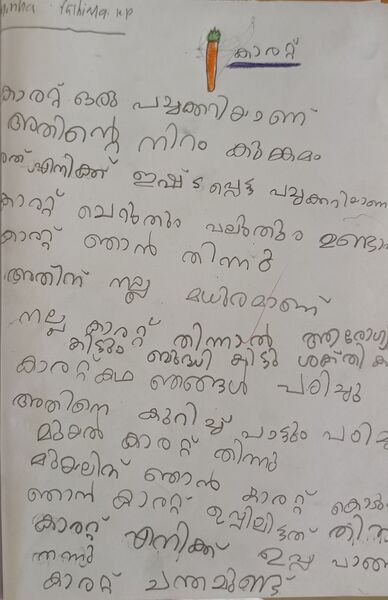 Fathima. KP
കാരറ്റ്
കാരറ്റ് ഒരു പച്ചക്കറിയാണ്
അതിന്റെ നിറം കുങ്കമം
അത് എനിക്ക് ഇഷ്ടപ്പെട്ട പച്ചക്കറിയാണ
കാരറ്റ് ചെറുതും വലുതും ഉണ്ടാ
കാരറ്റ് ഞാൻ തിന്നു
അതിന് നല്ല മധിരമാണ്
നല്ല കാരറ്റ് തിന്നാൽ ആരോഗ്യ
കിട്ടും ബുദ്ധി കിട്ടും ശക്തി ക
കാരറ്റ് കഥ ഞങ്ങൾ പഠിച്ചു
അതിനെ കുറിച്ച് പാട്ടും പഠിച്ചു
മുയൽ കാരറ്റ് തിന്നു
മുയലിന് ഞാൻ കാരറ്റ് കൊടു
ഞാൻ കാരറ്റ് ഉപ്പിലിട്ടത് തിന്ന
കാരറ്റ് എനിക്ക് ഉപ്പ
തന്നു
കാരറ്റ് ചന്തമുണ്ട്